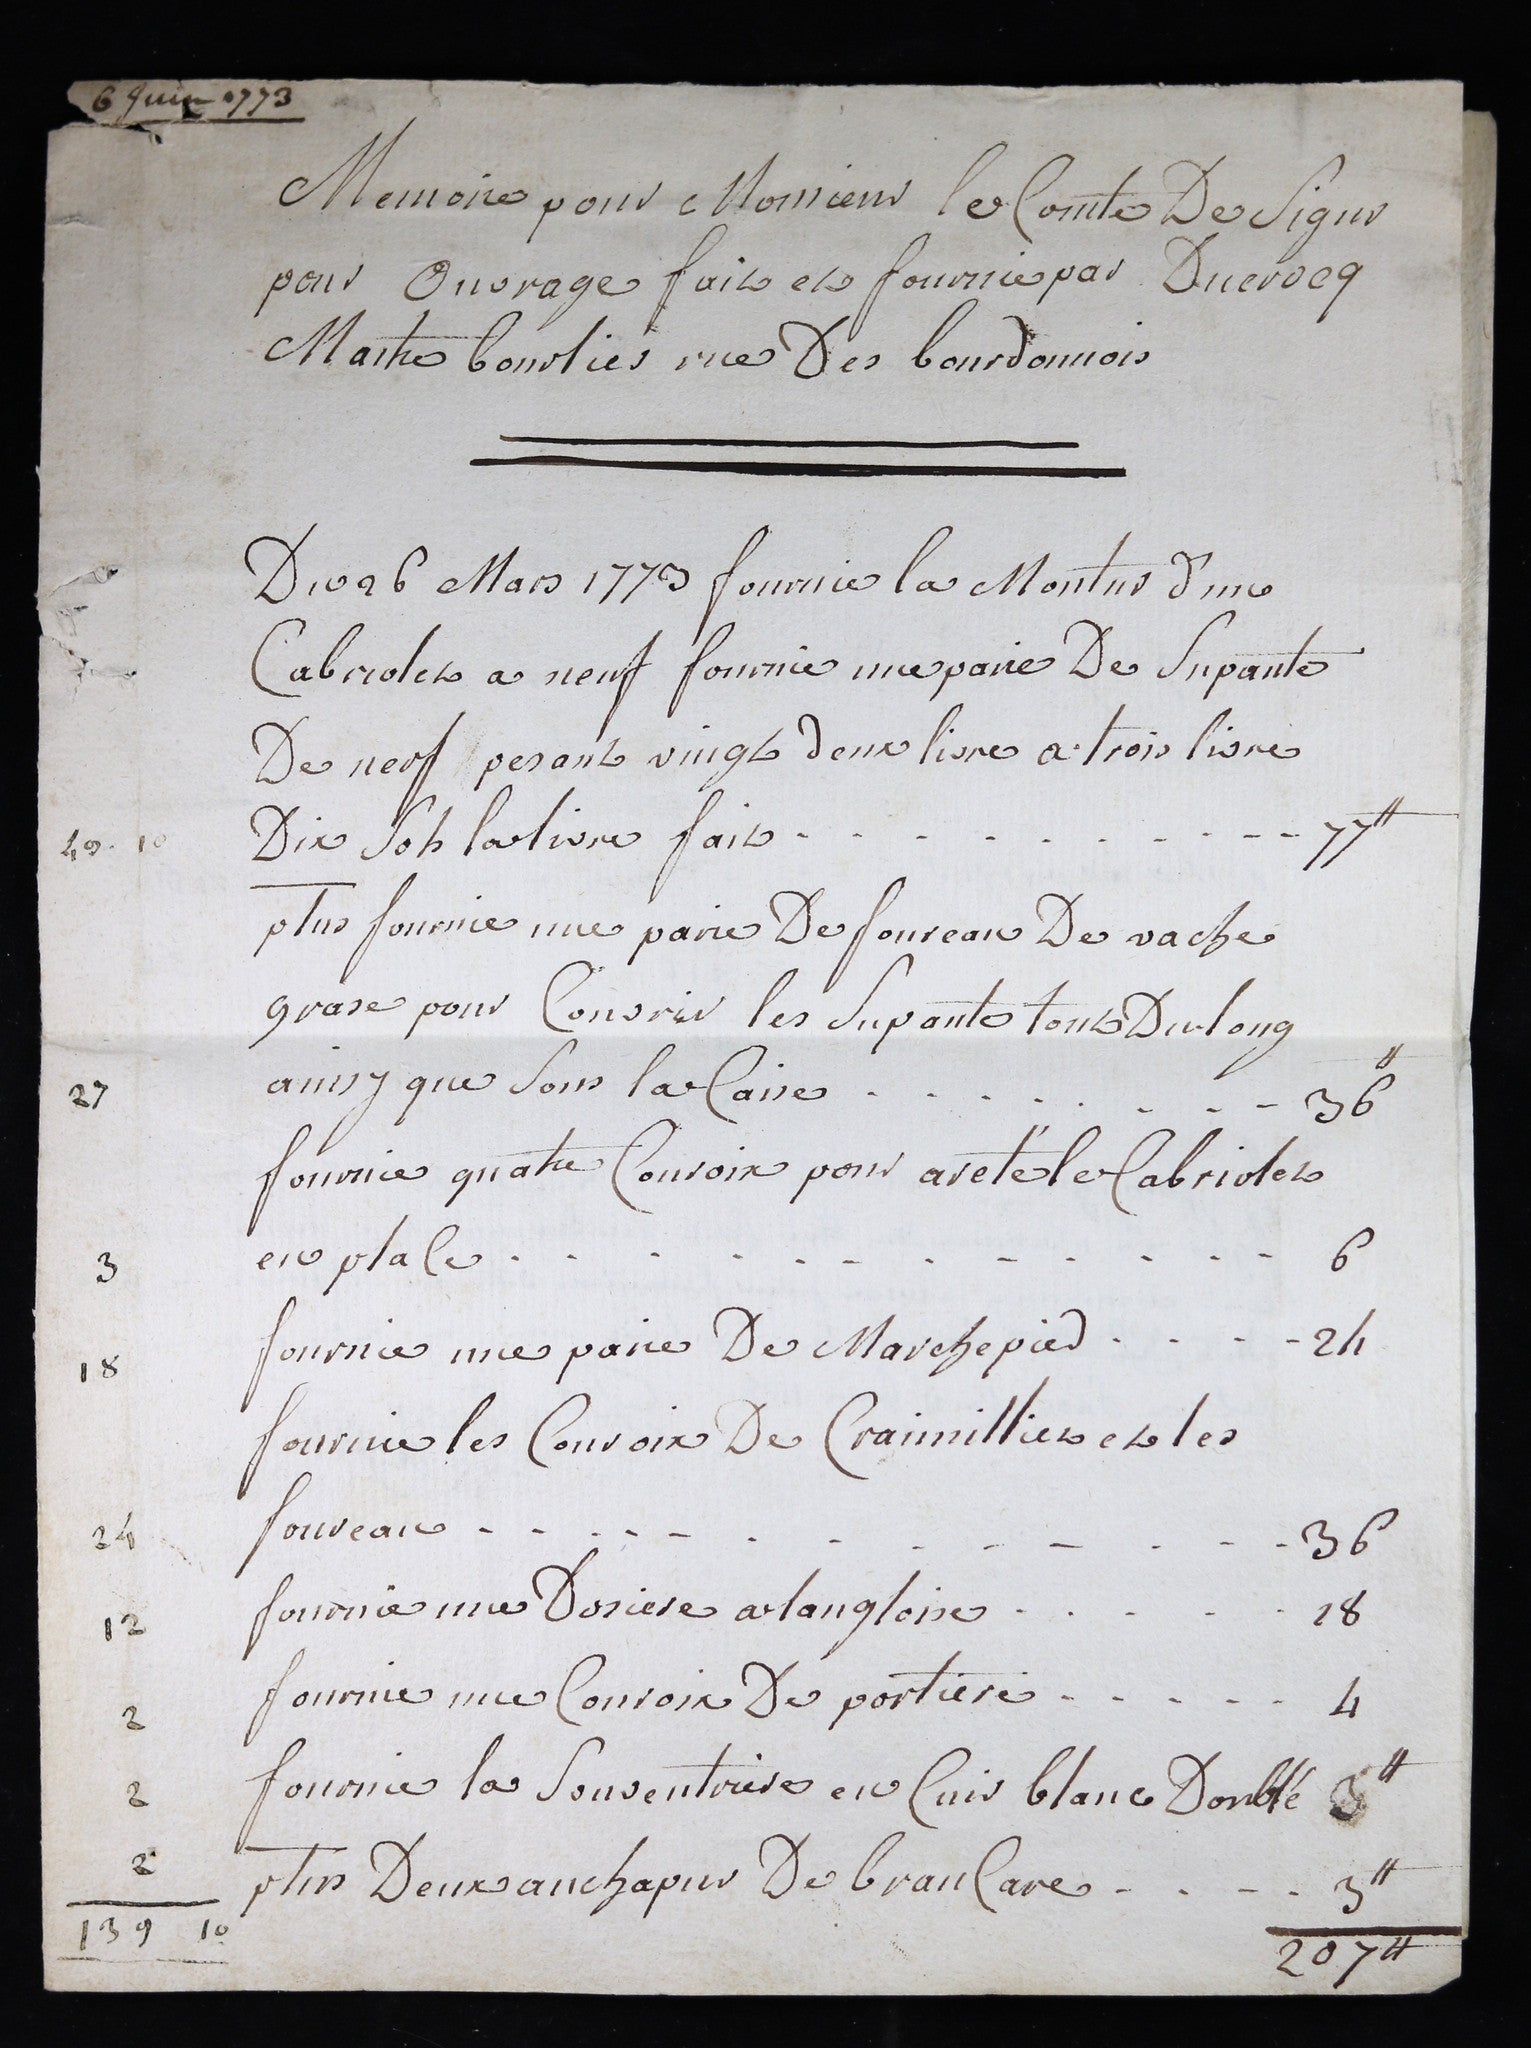 6 Juin 1773
Memoire pour Monsieur le Comte De Sigur
pour Ouvrage fait et fournie par Ducrocq
Maitre bourlier rue Des bourdonnois
Du 26 Mars 1773 fournie la Montur d'une
Cabriolet a neuf fournie une paire De Supante
De nerf pesant vingt deux livre a trois livre
49. 10 Dix Sols la livre fait - - - - - - - - - - 77tt
plus fournie une paire De foureau De vache
grase pour Couvrir les Supante tout Du long
27 ainsy que Sous la Caise - - - - - - - - 36tt
fournie quatre Couroix pour areté le Cabriolet
3 en place - - - - - - - - - - - - 6
18 fournie une paire De Marchepied - - - - 24
fournie les Couroix De Craimillier et les
24 foureau - - - - - - - - - - - - - 36
12 fournie une Dosiere a langloise - - - - - 18
2 fournie une Couroix De portiere - - - - - 4
2 fournie la Souventriere en Cuir blanc Doublé 3tt
2 plus Deux anchapur De brancare - - - - 3tt
139 10 207tt